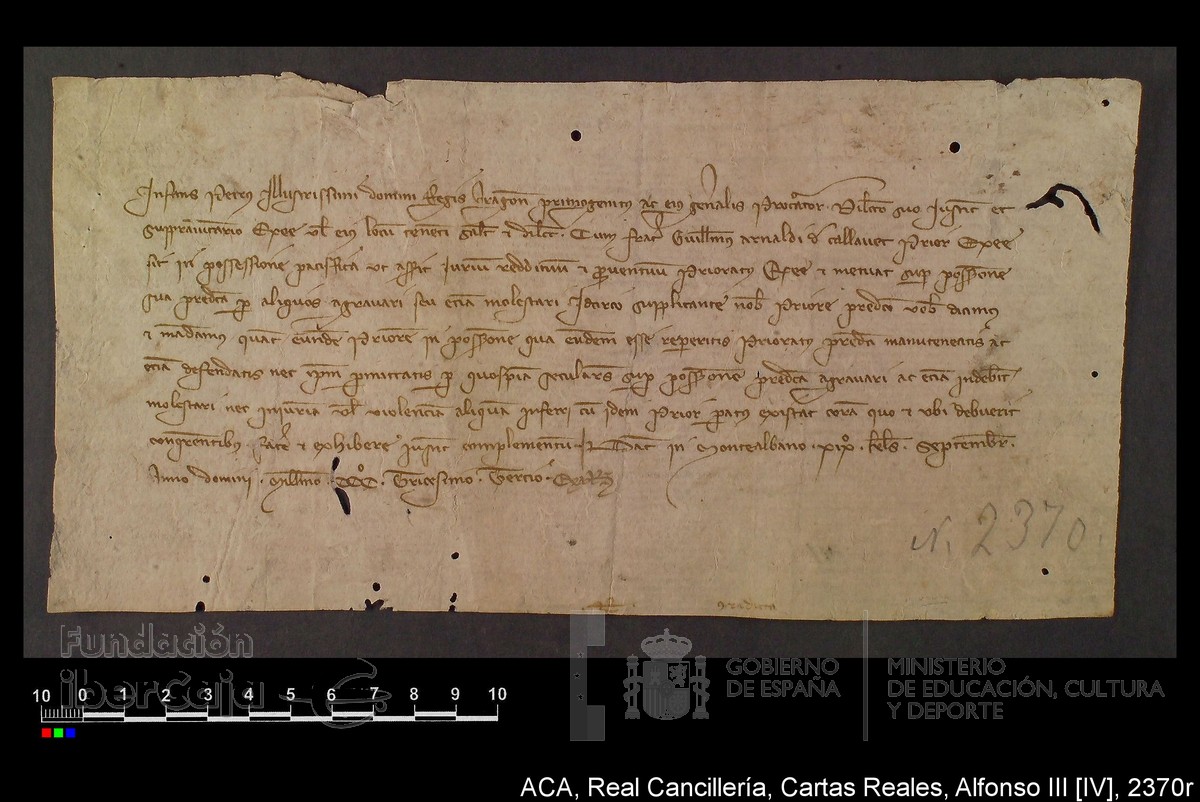 Infans Petrus Illustrissimi domini Regis Aragon primogenitus ac eius gnalis Procurator. Dilcto suo Iusticie et
suppraiunctario Exee vel eius locum tenenti saltm et dilcm. Cum frater Guillmus arnaldi de Prior Exee
sit in possessione pacifica ut asserit Iurium reddituum et proventuum Prioratus Exee et metuat super possessione
sua predicta per aliquos agravari seu eciam molestari Idcirco supplicante nobis Priore predicto vobis dicimus
et mandamus quatenus eundem Priorem in possessione qua eundem esse reperieritis Prioratus predicti manuteneatis ac
eciam defendatis nec ipsum permittatis per quospiam seculares super possessione predicta agravari ac eciam indebite
molestari nec iniuriam vel violenciam aliquam inferri cum idem Prior paratus existat coram quo et ubi debuerit
conquerentibus facere et exhibere iusticie complementum. Dat in Montealbano. xix. kls. Septembr.
Anno domini. Millmo. CCCo. Tricesimo. Tercio.
N. 2370
Fundación
iberCaja
10 0 1 2 3 4 5 6 7 8 9 10
GOBIERNO
DE ESPAÑA
MINISTERIO
DE EDUCACIÓN, CULTURA
Y DEPORTE
ACA, Real Cancillería, Cartas Reales, Alfonso III [IV], 2370r